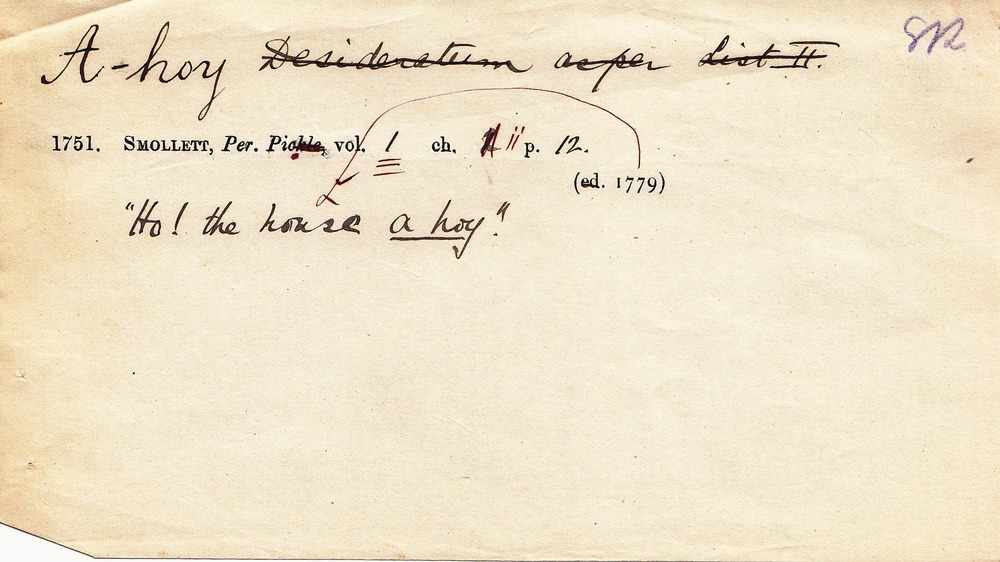 A-hoy Desideratum as per List II.
1751. SMOLLETT, Per. Pickle, vol. 1 ch. ii p. 12.
(ed. 1779)
"Ho! the house a hoy"